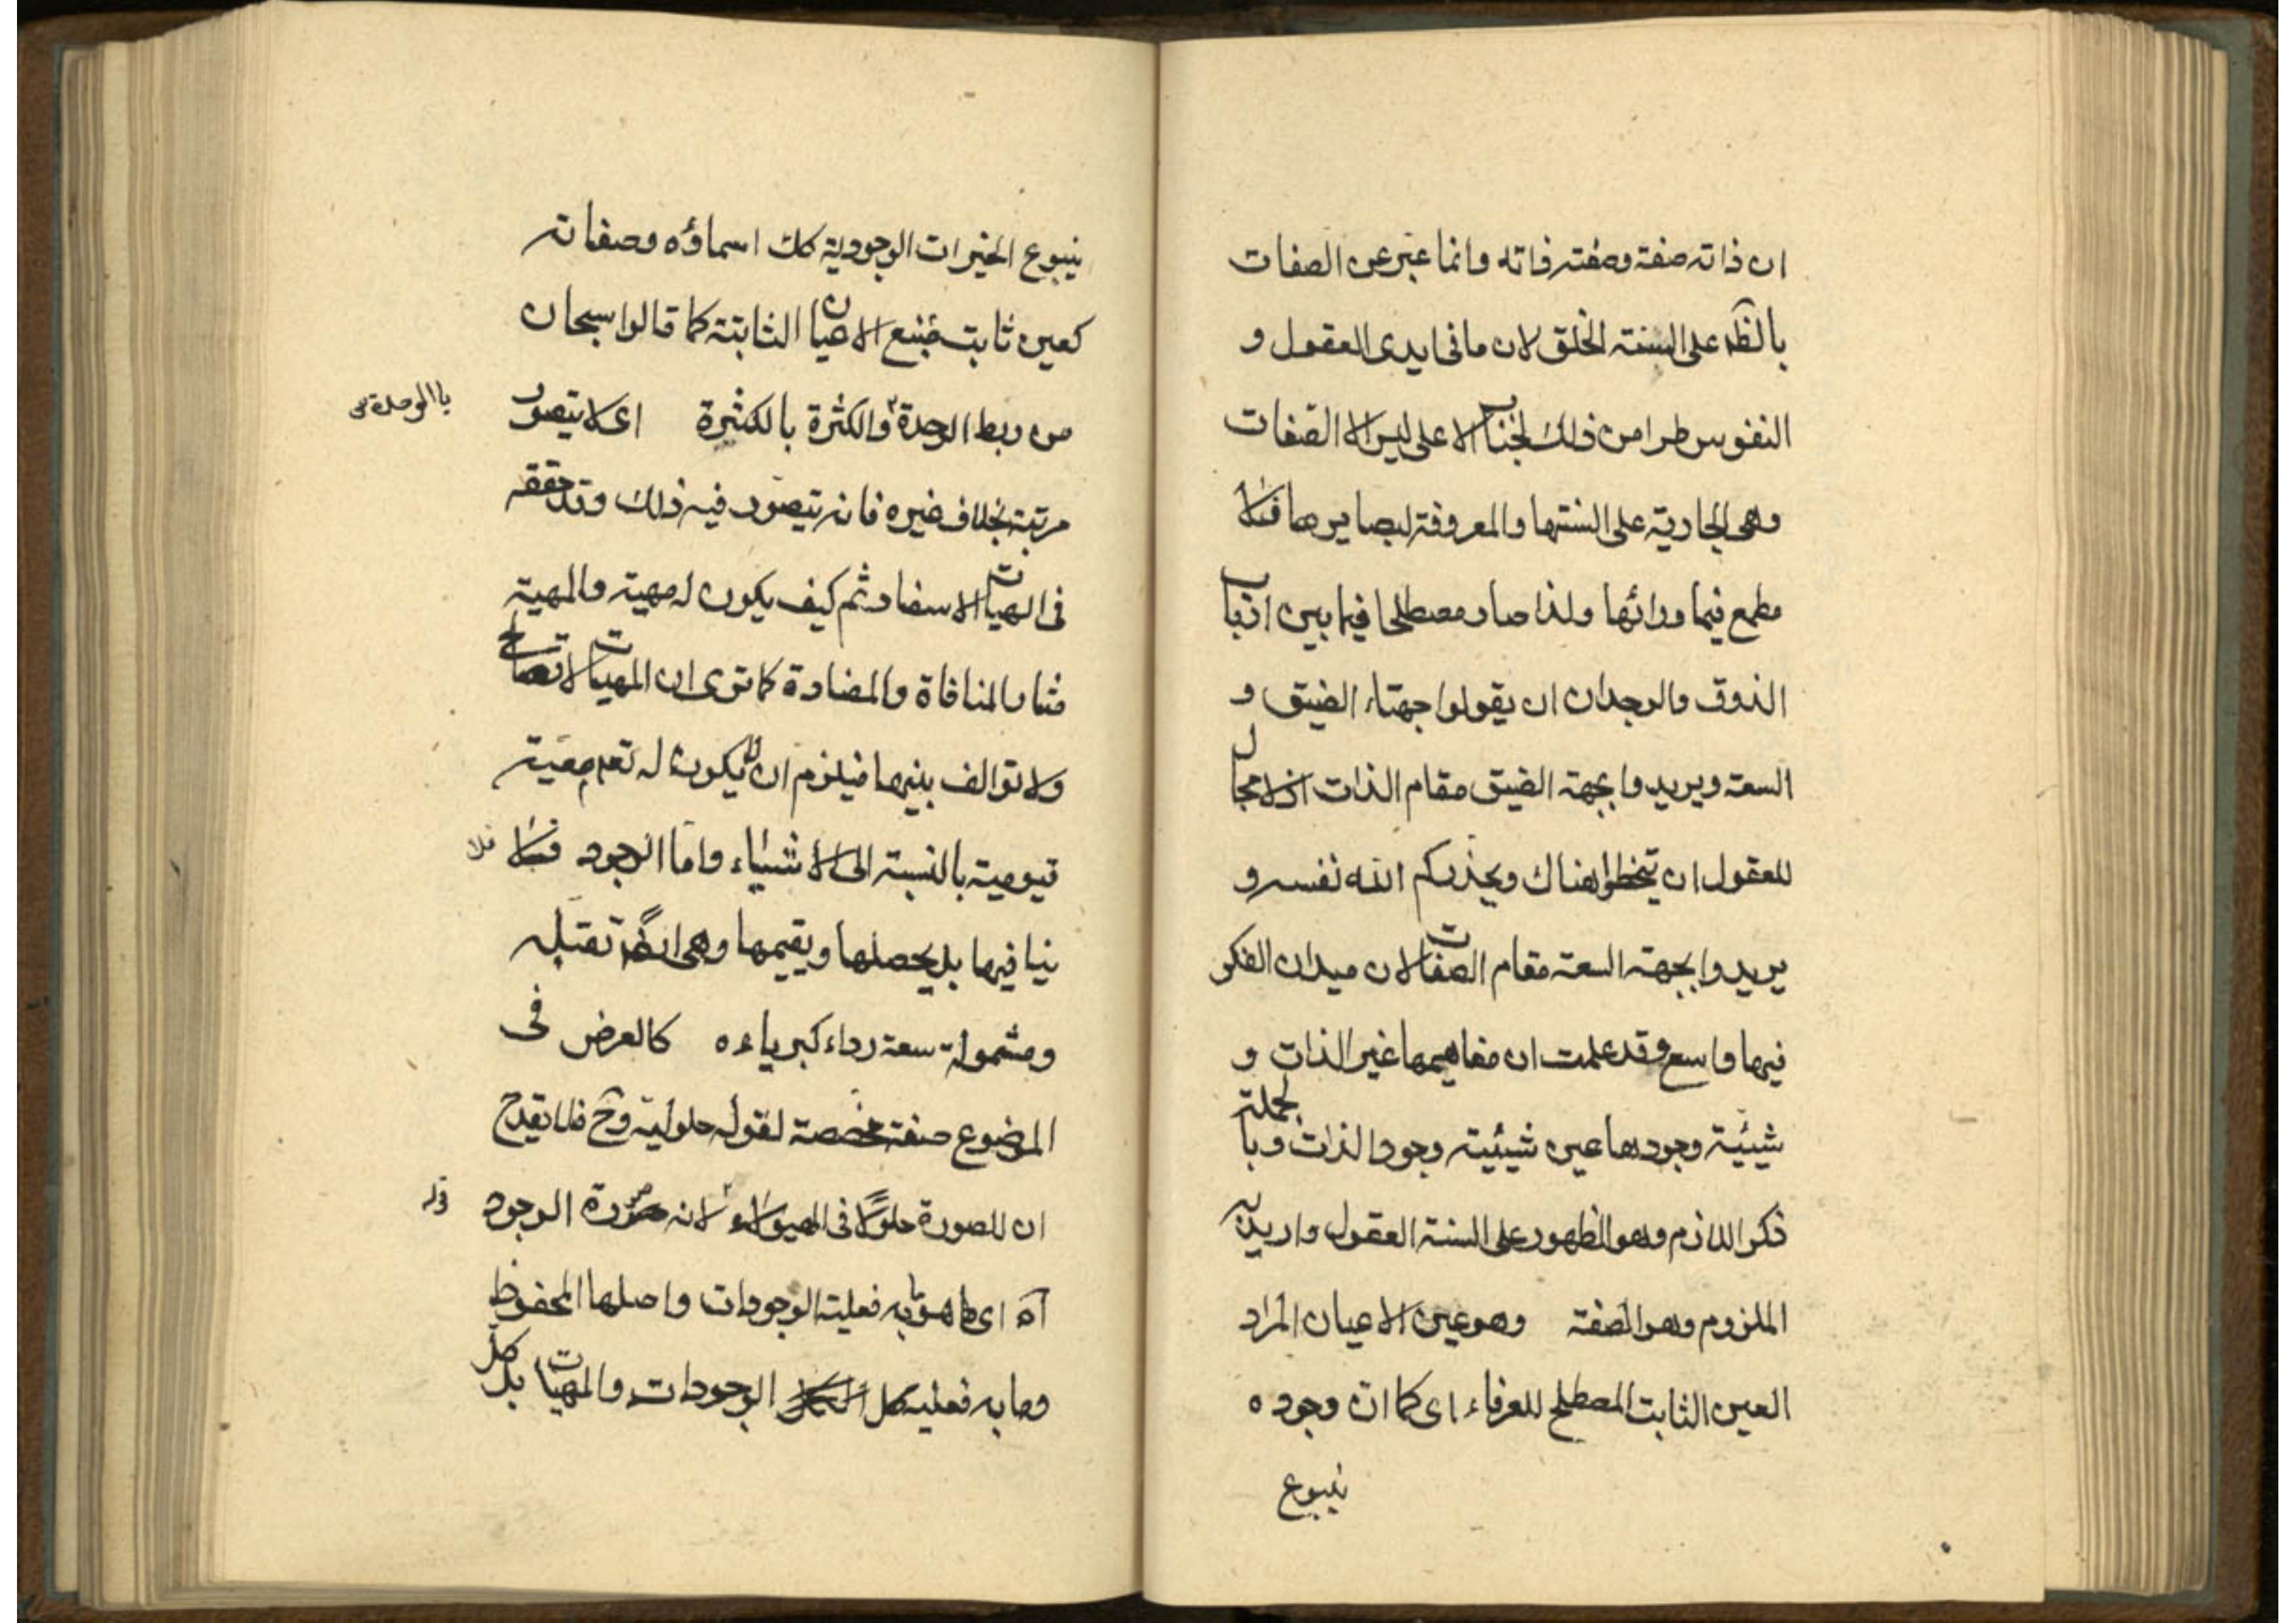 ان ذاته صفة وصفته ذاته وانما عبر عن الصفات
بالظه على السنة الخلق لان ما فى ايدى العقول و
النفوس طرا من ذلك الجناب الاعلى ليس الا الصفات
وهى الجارية على السنتها والمعروفة لبصايرها فلا
مطمع فيما ورائها ولذا صار مصطلحا فيما بين ارباب
الذوق والوجدان ان يقولوا جهتاء الضيق و
السعة ويريدوا بجهة الضيق مقام الذات اذ لا مجال
للعقول ان تتخطوا هناك ويحذركم الله نفسه و
يريدوا بجهة السعة مقام الصفات لان ميدان الفكر
فيها واسع وقد علمت ان مفاهيمها غير الذات و
شيئية وجودها عين شيئية وجود الذات وبالجملة
ذكر اللازم وهو الظهور على السنة العقول واريد به
الملزوم وهو الصفة وهو عين الاعيان المراد
العين الثابت المصطلح للعرفاء اى كما ان وجوده
ينبوع
ينبوع الخيرات الوجودية كك اسماؤه وصفاته
كعين ثابت منبع الاعيان الثابتة كما قالوا سبحان
من ربط الوحدة والكثرة بالكثرة اى لا يتصور
بالوحدة
مرتبة بخلاف غيره فانه يتصور فيه ذلك وقد حققه
فى الهيات الاسفار ثم كيف يكون له مهية والمهية
مثار المنافاة والمضادة كما ترى ان المهيات لا تصالح
ولا توالف بينها فيلزم ان لا يكون له تعم معية
قيومية بالنسبة الى الاشياء واما الوجود فلا
فلا
ينافيها بل يحصلها ويقيمها وهى ايضا تقبله
ومشمولة سعة رداء كبرياءه كالعرض فى
الموضوع صفة مخصصة لقوله حلولية وح فلا يقدح
ان للصورة حلولا فى الهيولاء لانه صورة الوجود
قوله
آه اى ما هو به فعلية الوجودات واصلها المحفوظ
وما به فعلية كل الوجودات والمهيات بل كل